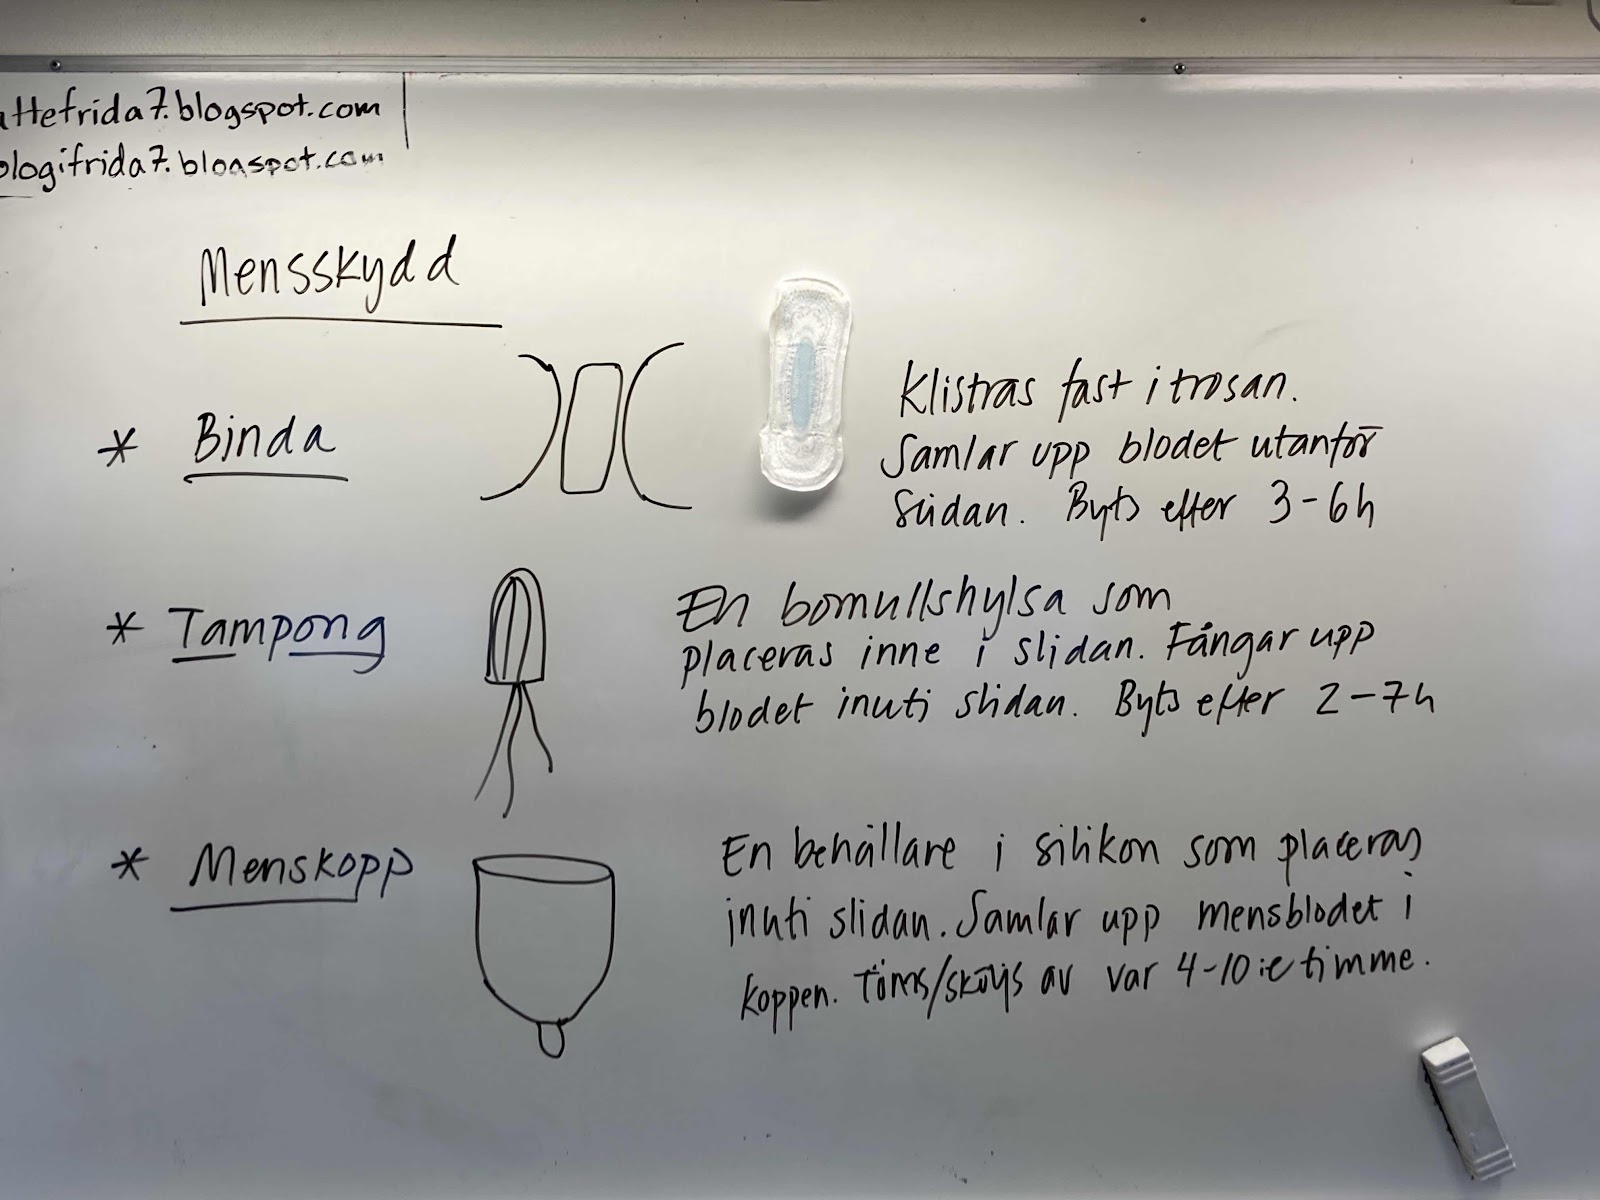 attefrida7.blogspot.com
ologifrida7.blogspot.com
Mensskydd
* Binda
Klistras fast i trosan.
Samlar upp blodet utanför
slidan. Byts efter 3-6h
* Tampong
En bomullshylsa som
placeras inne i slidan. Fångar upp
blodet inuti slidan. Byts efter 2-7h
* Menskopp
En behållare i silikon som placeras
inuti slidan. Samlar upp mensblodet i
koppen. Töms/sköljs av var 4-10:e timme.